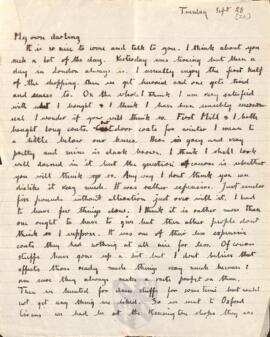 Tuesday Sept 28
My own darling
It is so nice to come and talk to you. I think about you
such a lot of the day. Yesterday was tiring but then a
day in London always is. I usually enjoy the first half
of the shopping, then it gets hurried and one gets tired
and ceases to. On the whole I think I am very satisfied
with what I bought & I think I have been sensibly economical
I wonder if you will think so. First Moll & I both
bought long coats, outdoor coats for winter I mean to
a little below our knees. Hers is grey and very
pretty and mine is black known, I think I shall look
well dressed in it but the question of course is whether
you will think so. Any way I don't think you can
dislike it very much. It was rather expensive. Just under
five pounds without alteration just over with it. I had
to have few things done. I think it is rather more than
one ought to have to give but then other people don't
think so I suppose. It was one of their less expensive
coats they had nothing at all nice for less. Of course
stuffs have gone up a bit but I don't believe that
affects these ready made things very much because I
am sure they always make a vast profit on them.
Then we hunted for dress stuffs for some time but could
not get any thing we liked. So we went to Oxford
Circus we had been at the Kensington shops they are